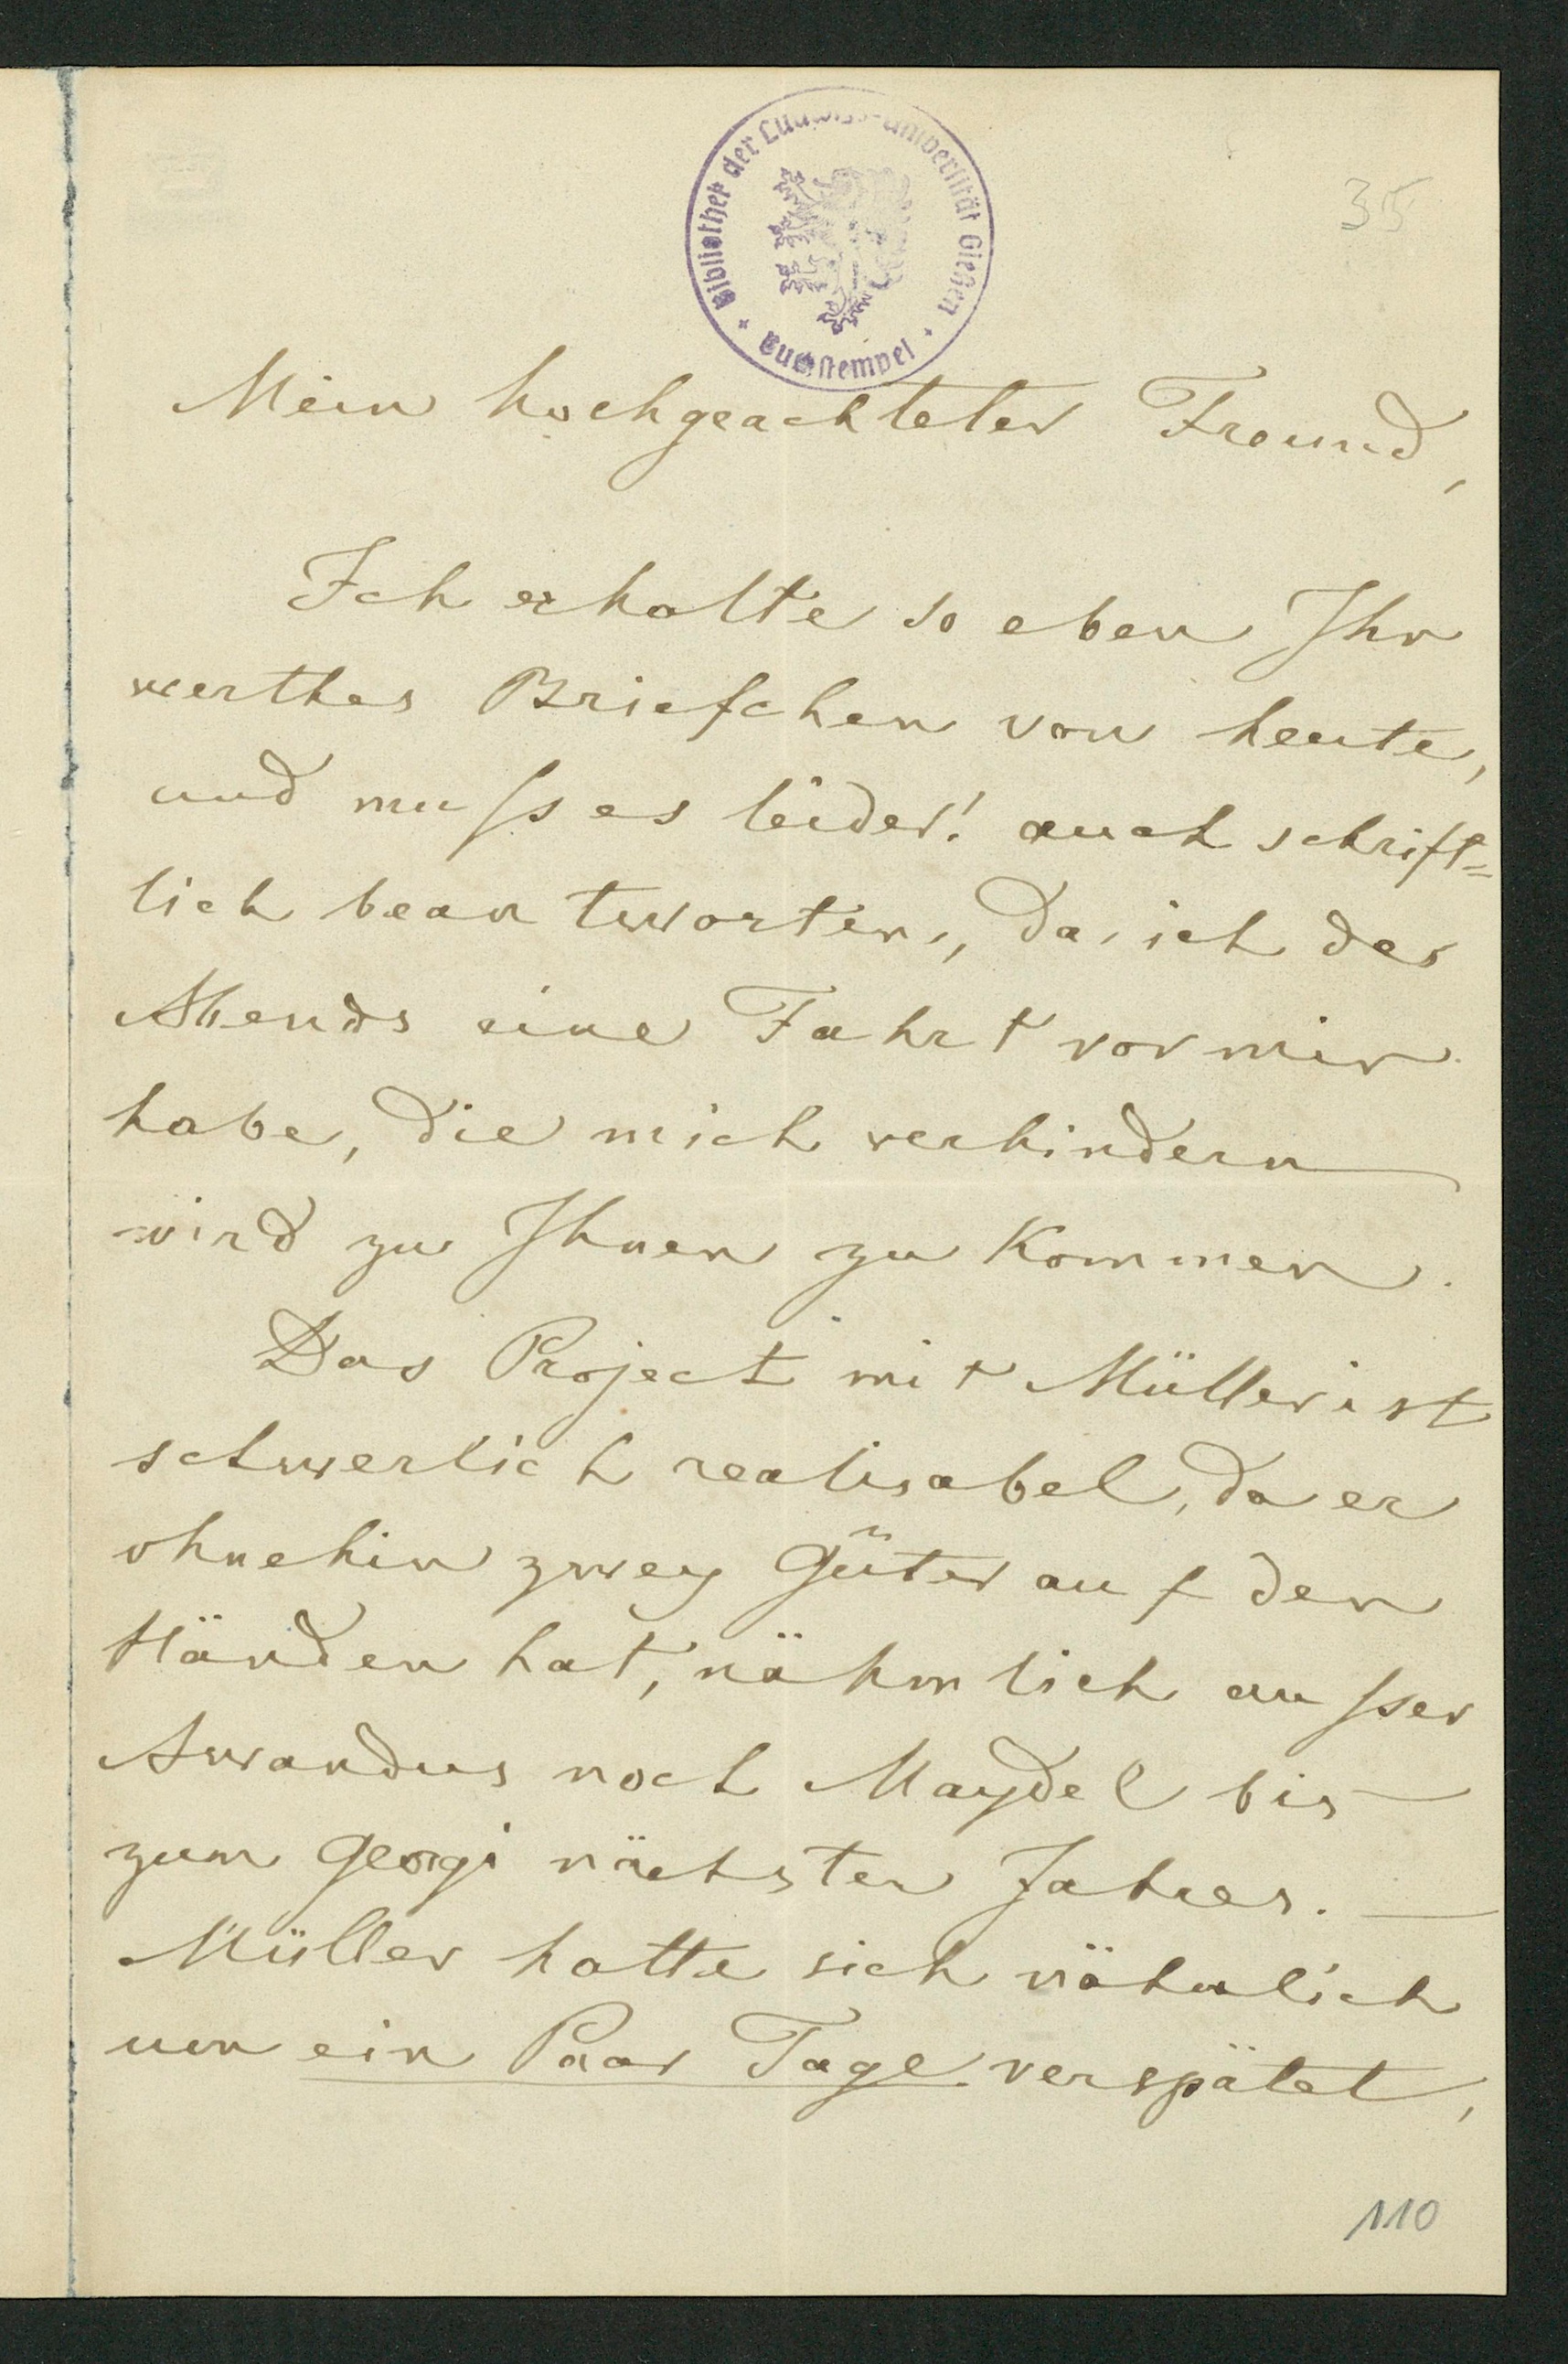 Bibliothek der Ludwigs-Universität Gießen
Buchstempel
35
Mein hochgeachteter Freund,
Ich erhalte so eben Ihr
werthes Briefchen von heute,
und muſs es leider! auch schrift=
lich beantworten, da ich des
Abends eine Fahrt vor mir
habe, die mich verhindern
wird zu Ihnen zu kommen.
Das Project mit Müller ist
schwerlich realisabel, da er
ohnehin zwey Güter auf den
Händen hat, nähmlich auſser
Awandus noch Maydel bis
zum Georgi nächsten Jahres. —
Müller hatte sich nähmlich
um ein Paar Tage verspätet,
110